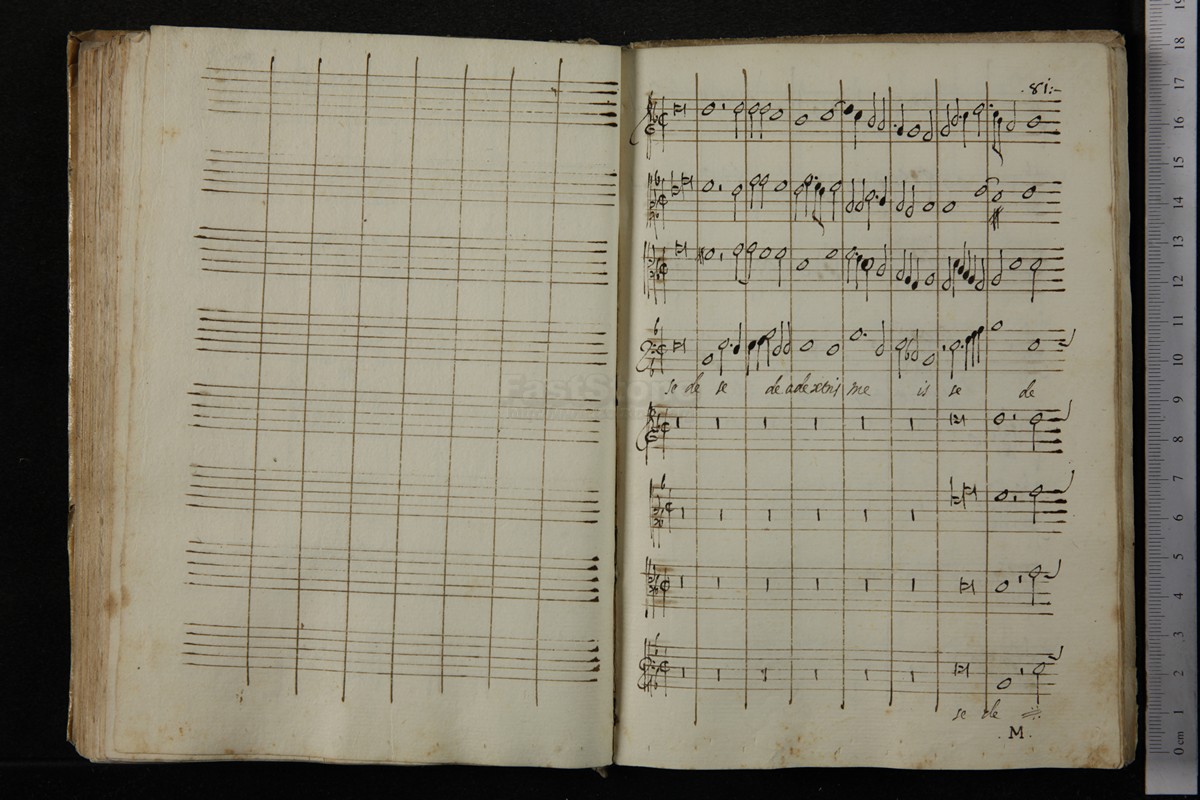 .81:-
se de se de adextris me is se de
se de
.M.
0 cm 1 2 3 4 5 6 7 8 9 10 11 12 13 14 15 16 17 18 19